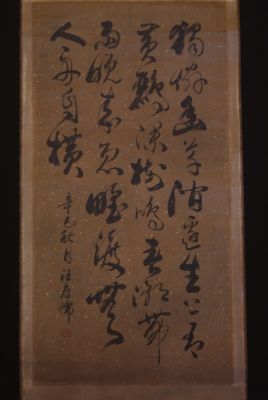 獨憐幽草澗邊生上有
黃鸝深樹鳴春潮帶
雨晚來急野渡無
人舟自橫
辛巳秋月汪